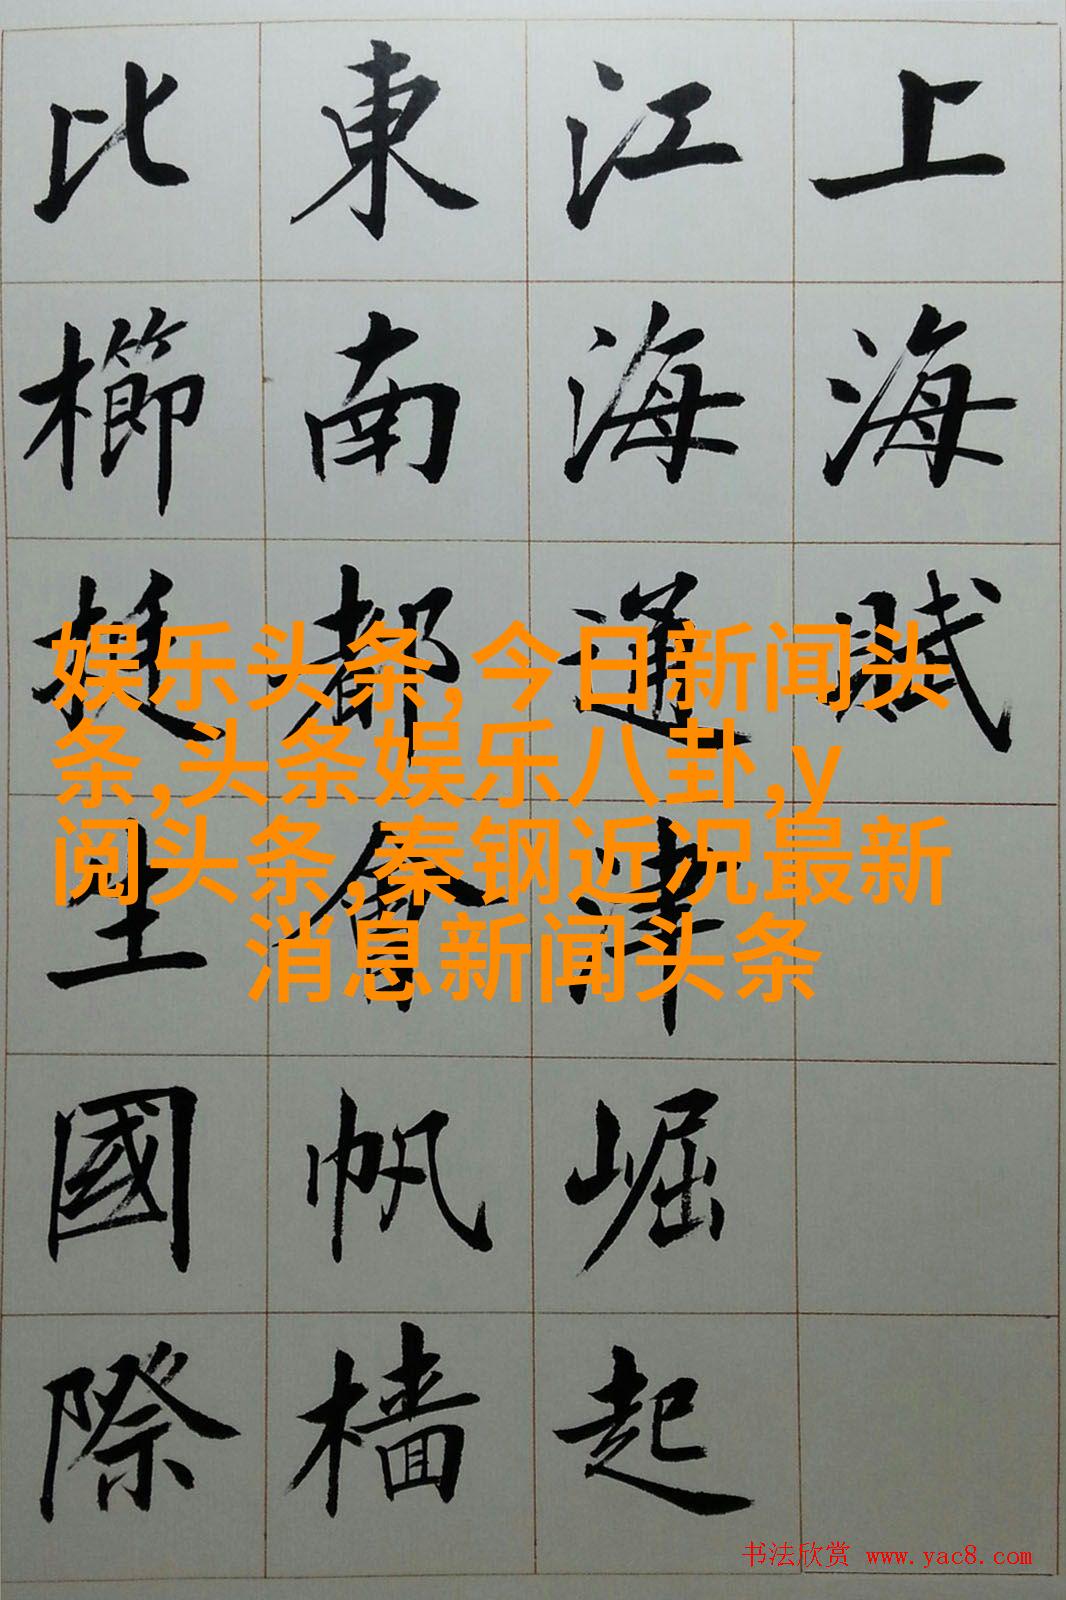 上海賦
江海通津崛起
東南都會帆檣
比櫛挺生國際
娱乐头条,今日新闻头
条,头条娱乐八卦,y
阅头条,秦钢近况最新
消息新闻头条
书法欣赏 www.yac8.com